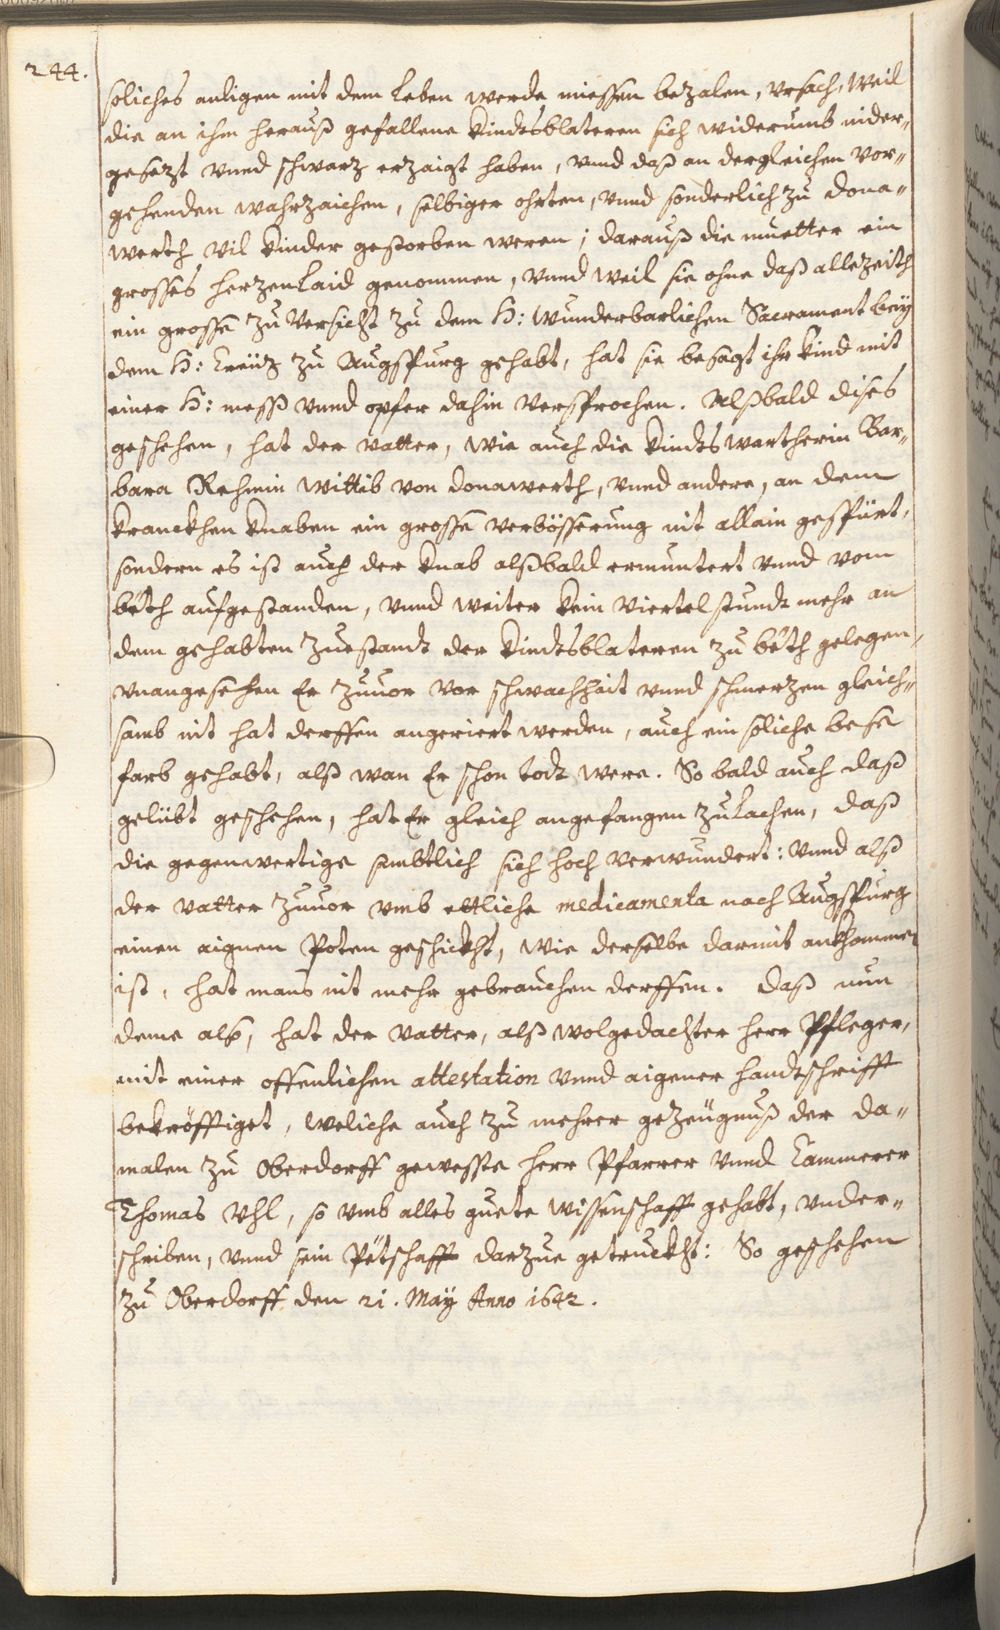 244.
soliches anligen mit dem Leben werde miessen bezalen, vrsach, weil
die an ihm herauß gefallene Kindtsblateren sich widerumb nider-
gesezt vnnd schwarz erzaigt haben, vnnd daß an dergleichen vor-
gehenden wahrzaichen, selbiger ohrten, vnnd sonderlich zu Dona-
werth vil Kinder gestorben weren; darauß die muetter ein
grosses herzenLaid genommen, vnnd weil sie ohne daß allezeith
ein grosse zuversicht zu dem H: wunderbarlichen Sacrament beÿ
dem H: Creüz zu Augspurg gehabt, hat sie besagt ihr Kind mit
einer H: mess vnnd opfer dahin versprochen. Alßbald dises
geschehen, hat der vatter, wie auch die Kindtswartherin Bar-
bara Rehmin wittib von Donawerth, vnnd andere, an dem
Kranckhen Knaben ein grosse verbösserung nit allain gespürt,
sondern es ist auch der Knab alßbald ermuntert vnnd vom
böth aufgestanden, vnnd weiter kein viertel stundt mehr an
dem gehabten zuestandt der Kindtsblateren zu böth gelegen,
vnangesehen Er zuuor vor schwachheit vnnd schmerzen gleich-
samb nit hat derffen angeriert werden, auch ein soliche bese
farb gehabt, alß wan Er schon todt were. So bald auch daß
gelübt geschehen, hat Er gleich angefangen zuLachen, daß
die gegenwertige sambtlich sich hoch verwundert: vnnd alß
der vatter zuuor vmb ettliche medicamenta nach Augspurg
einen aignen Poten geschickht, wie derselbe darmit ankhommen
ist, hat mans nit mehr gebrauchen derffen. Daß nun
deme also, hat der vatter, alß wolgedachter herr Pfleger,
mit einer offenlichen attestation vnnd aigener handtschrifft
bekröfftiget, weliche auch zu mehrer gezeügnuß der da-
malen zu Oberdorff geweste herr Pfarrer vnnd Cammerer
Thomas Vhl, so vmb alles guete wissenschafft gehabt, vnder-
schriben, vnnd sein Pötschafft darzue getruckht: So geschehen
zu Oberdorff den 21. Maÿ Anno 1642.